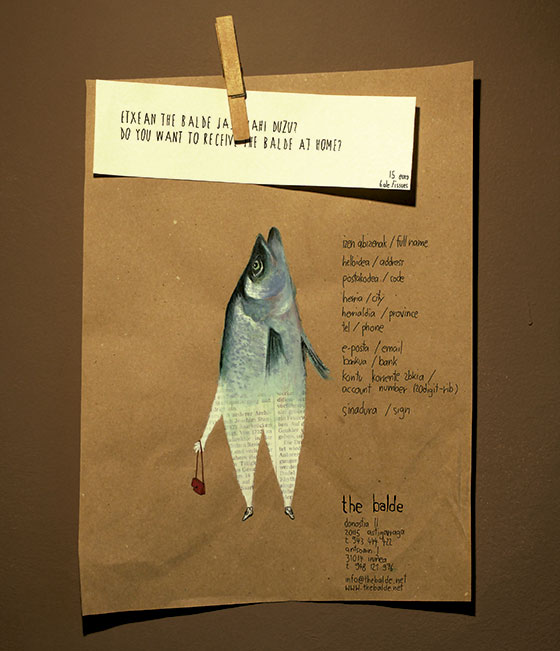 ETXEAN THE BALDE NAHI DUZU?
DO YOU WANT TO RECEIVE THE BALDE AT HOME?
15 euro
6 ale / issues
izen abizenak / full name
helbidea / address
postakodea / code
herria / city
herrialdia / province
tel / phone
e-posta / email
bankua / bank
kontu korronte zbkia /
account number (20digit-rib)
sinadura / sign
the balde
donostia 11
20115 astigarraga
t. 943 444 422
antsoain 1
31014 iruñea
t. 948 121 976
info@thebalde.net
www.thebalde.net